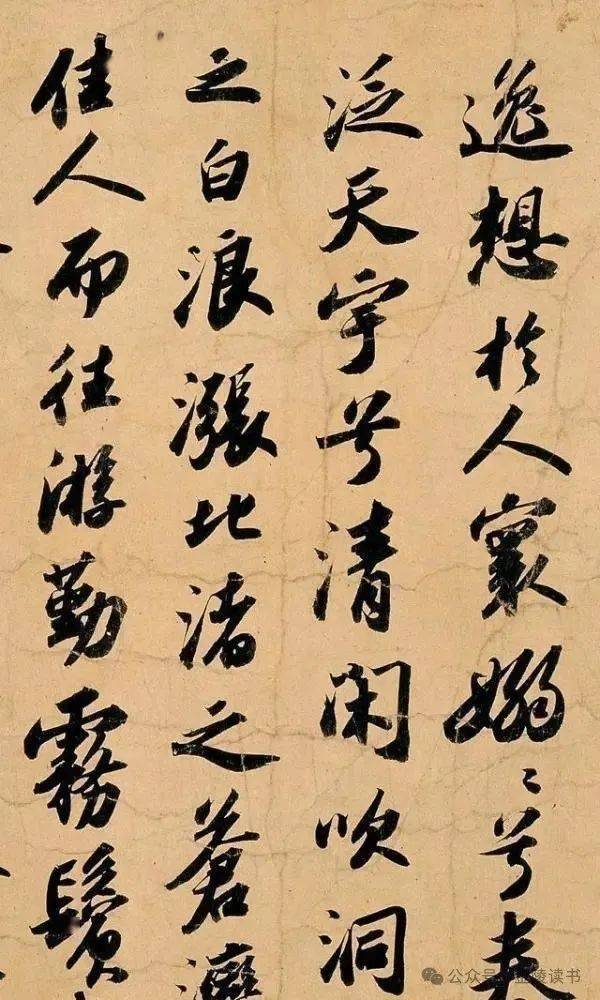 逸想於人寰嫋〻兮
泛天宇兮清閑吹洞
之白浪漲北渚之蒼
佳人而往游勤霧鬢
公众号·金陵读书